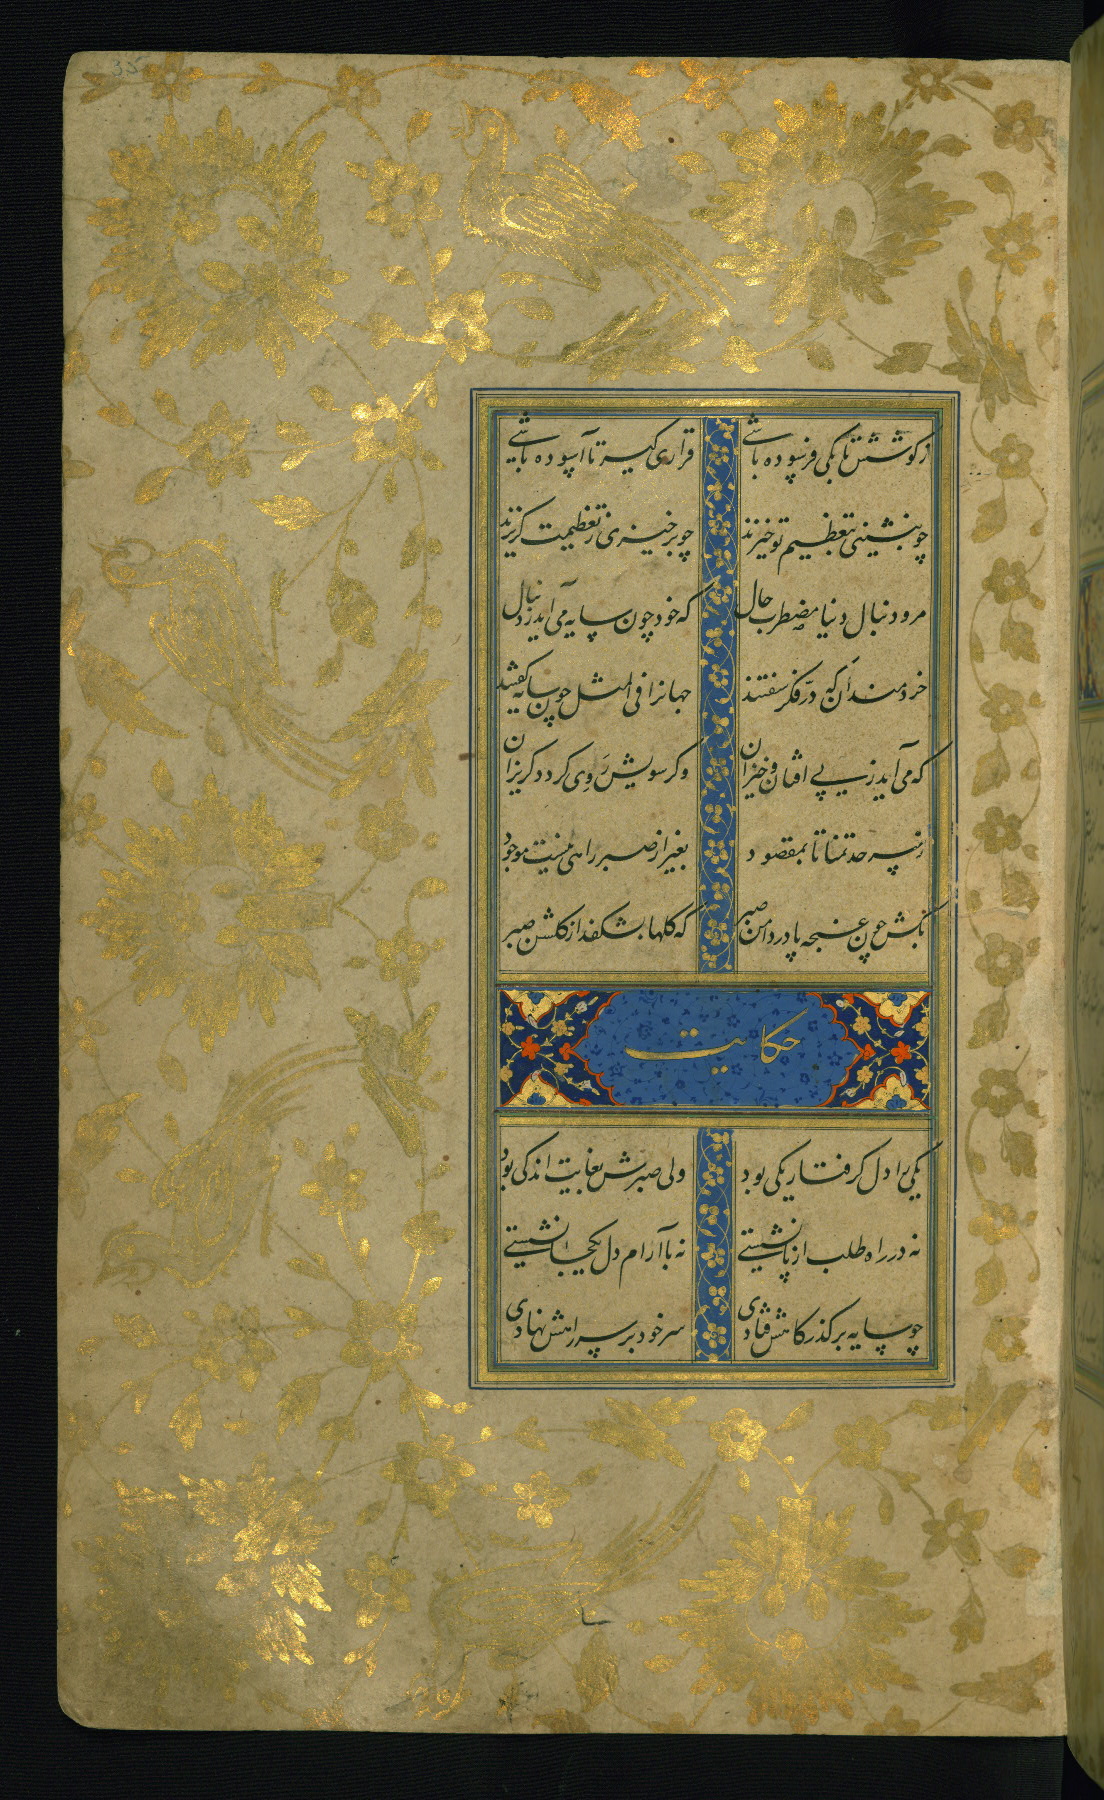 ز کوشش تا بکی فرسوده باشی قراری گیر تا آسوده باشی
چو بنشینی بتعظیم تو خیزند چو برخیزی ز تعظیمت گریزند
مرو دنبال دنیا مضطرب حال که خود چون سایه می آید ز دنبال
خردمندان که در فکر سفتند جهانرا فی المثل چون سایه گفتند
که می آید ز پی افتان و خیزان وگر سویش روی گردد گریزان
ز سر حد تمنا تا بمقصود بغیر از صبر راهی نیست موجود
بکش چون غنچه پا در دامن صبر که گلها بشکفد از گلشن صبر
حکایت
یکی را دل گرفتار یکی بود ولی صبرش بغایت اندکی بود
نه در راه طلب از پا نشستی نه با آرام دل یکجا نشستی
چو سایه بر گذر کاهش فتادی سر خود بر سر راهش نهادی